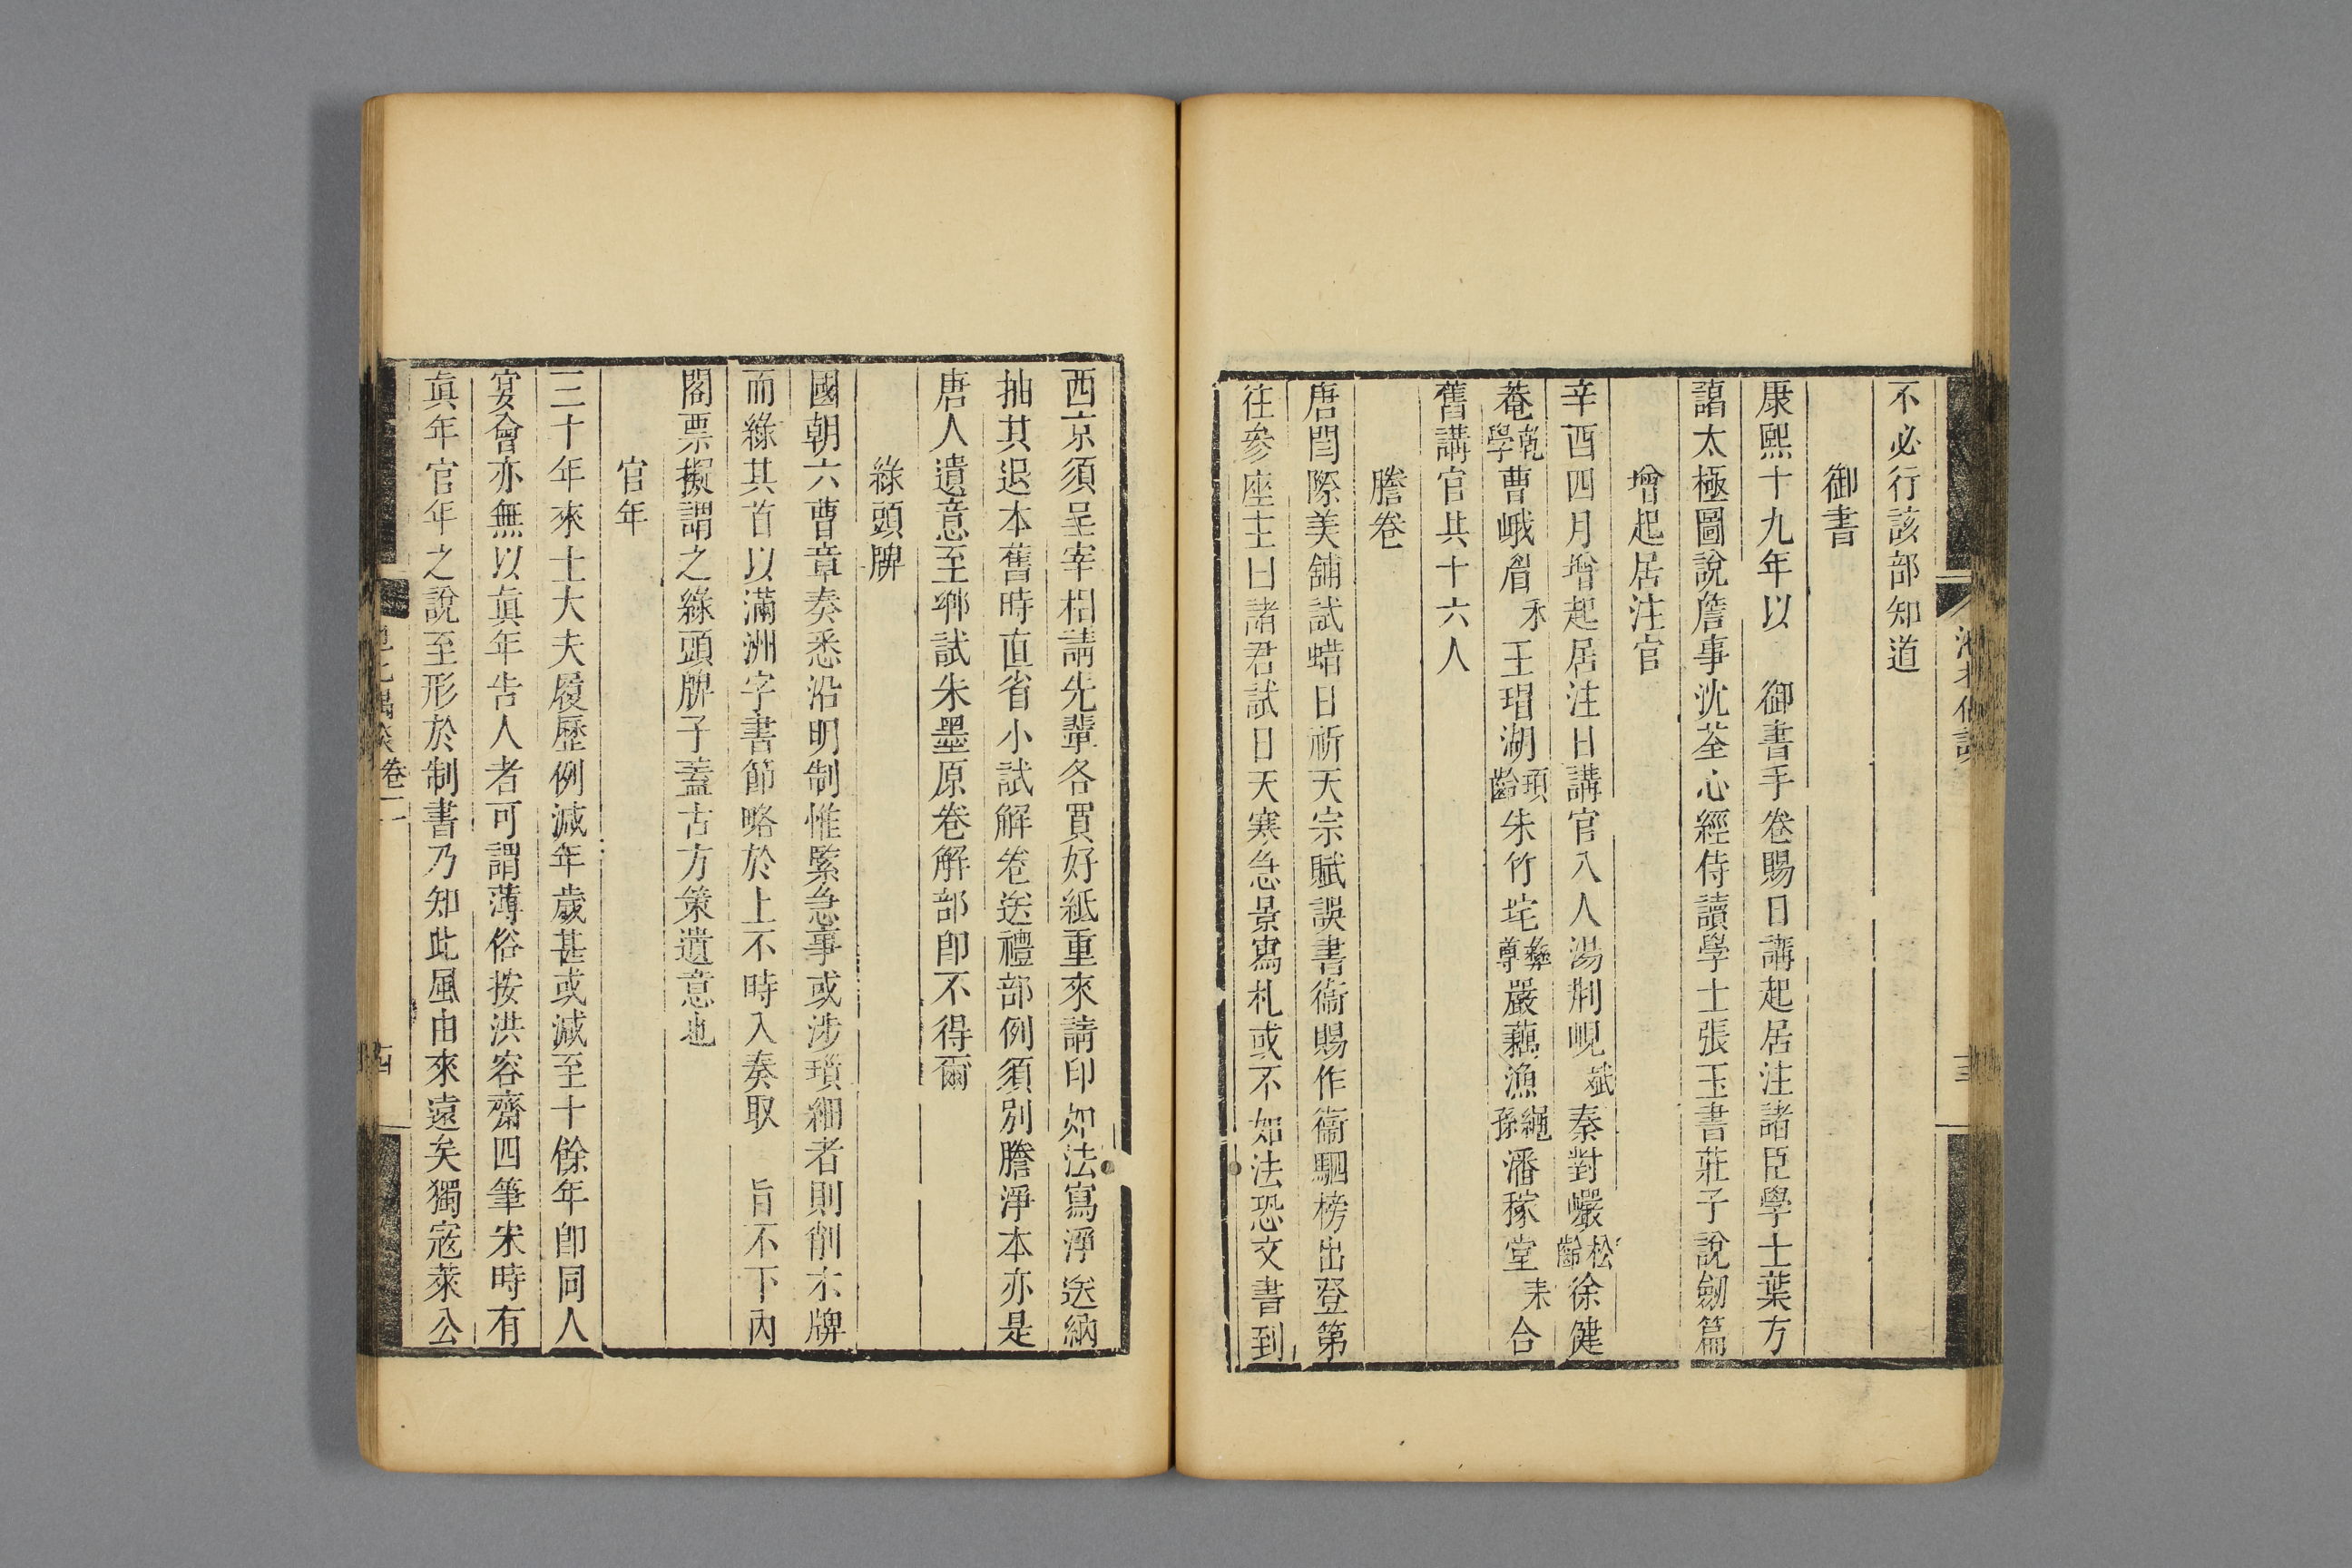 不必行該部知道
御書
康熙十九年以 御書手卷賜日講起居注諸臣學士葉方
藹太極圖說詹事沈荃心經侍讀學士張玉書莊子說劒篇
增起居注官
辛酉四月增起居注日講官八人湯荆峴斌秦對巖松齡徐健
菴乾學曹峨眉禾王瑁湖頊齡朱竹垞彝尊嚴藕漁繩孫潘稼堂耒合
舊講官共十六人
謄卷
唐閻際美舖試蜡日祈天宗賦誤書衞賜作衞駟榜出登第
往參座主曰諸君試日天寒急景寫札或不如法恐文書到
西京須呈宰相請先輩各買好紙重來請印如法寫淨送納
抽其退本舊時直省小試解卷送禮部例須別謄淨本亦是
唐人遺意至鄉試朱墨原卷解部即不得爾
綠頭牌
國朝六曹章奏悉沿明制惟緊急事或涉瑣細者則削木牌
而綠其首以滿洲字書節略於上不時入奏取 旨不下內
閣票擬謂之綠頭牌子蓋古方策遺意也
官年
三十年來士大夫履歷例減年歲甚或減至十餘年即同人
宴會亦無以眞年告人者可謂薄俗按洪容齋四筆宋時有
眞年官年之說至形於制書乃知此風由來遠矣獨寇萊公
卷二